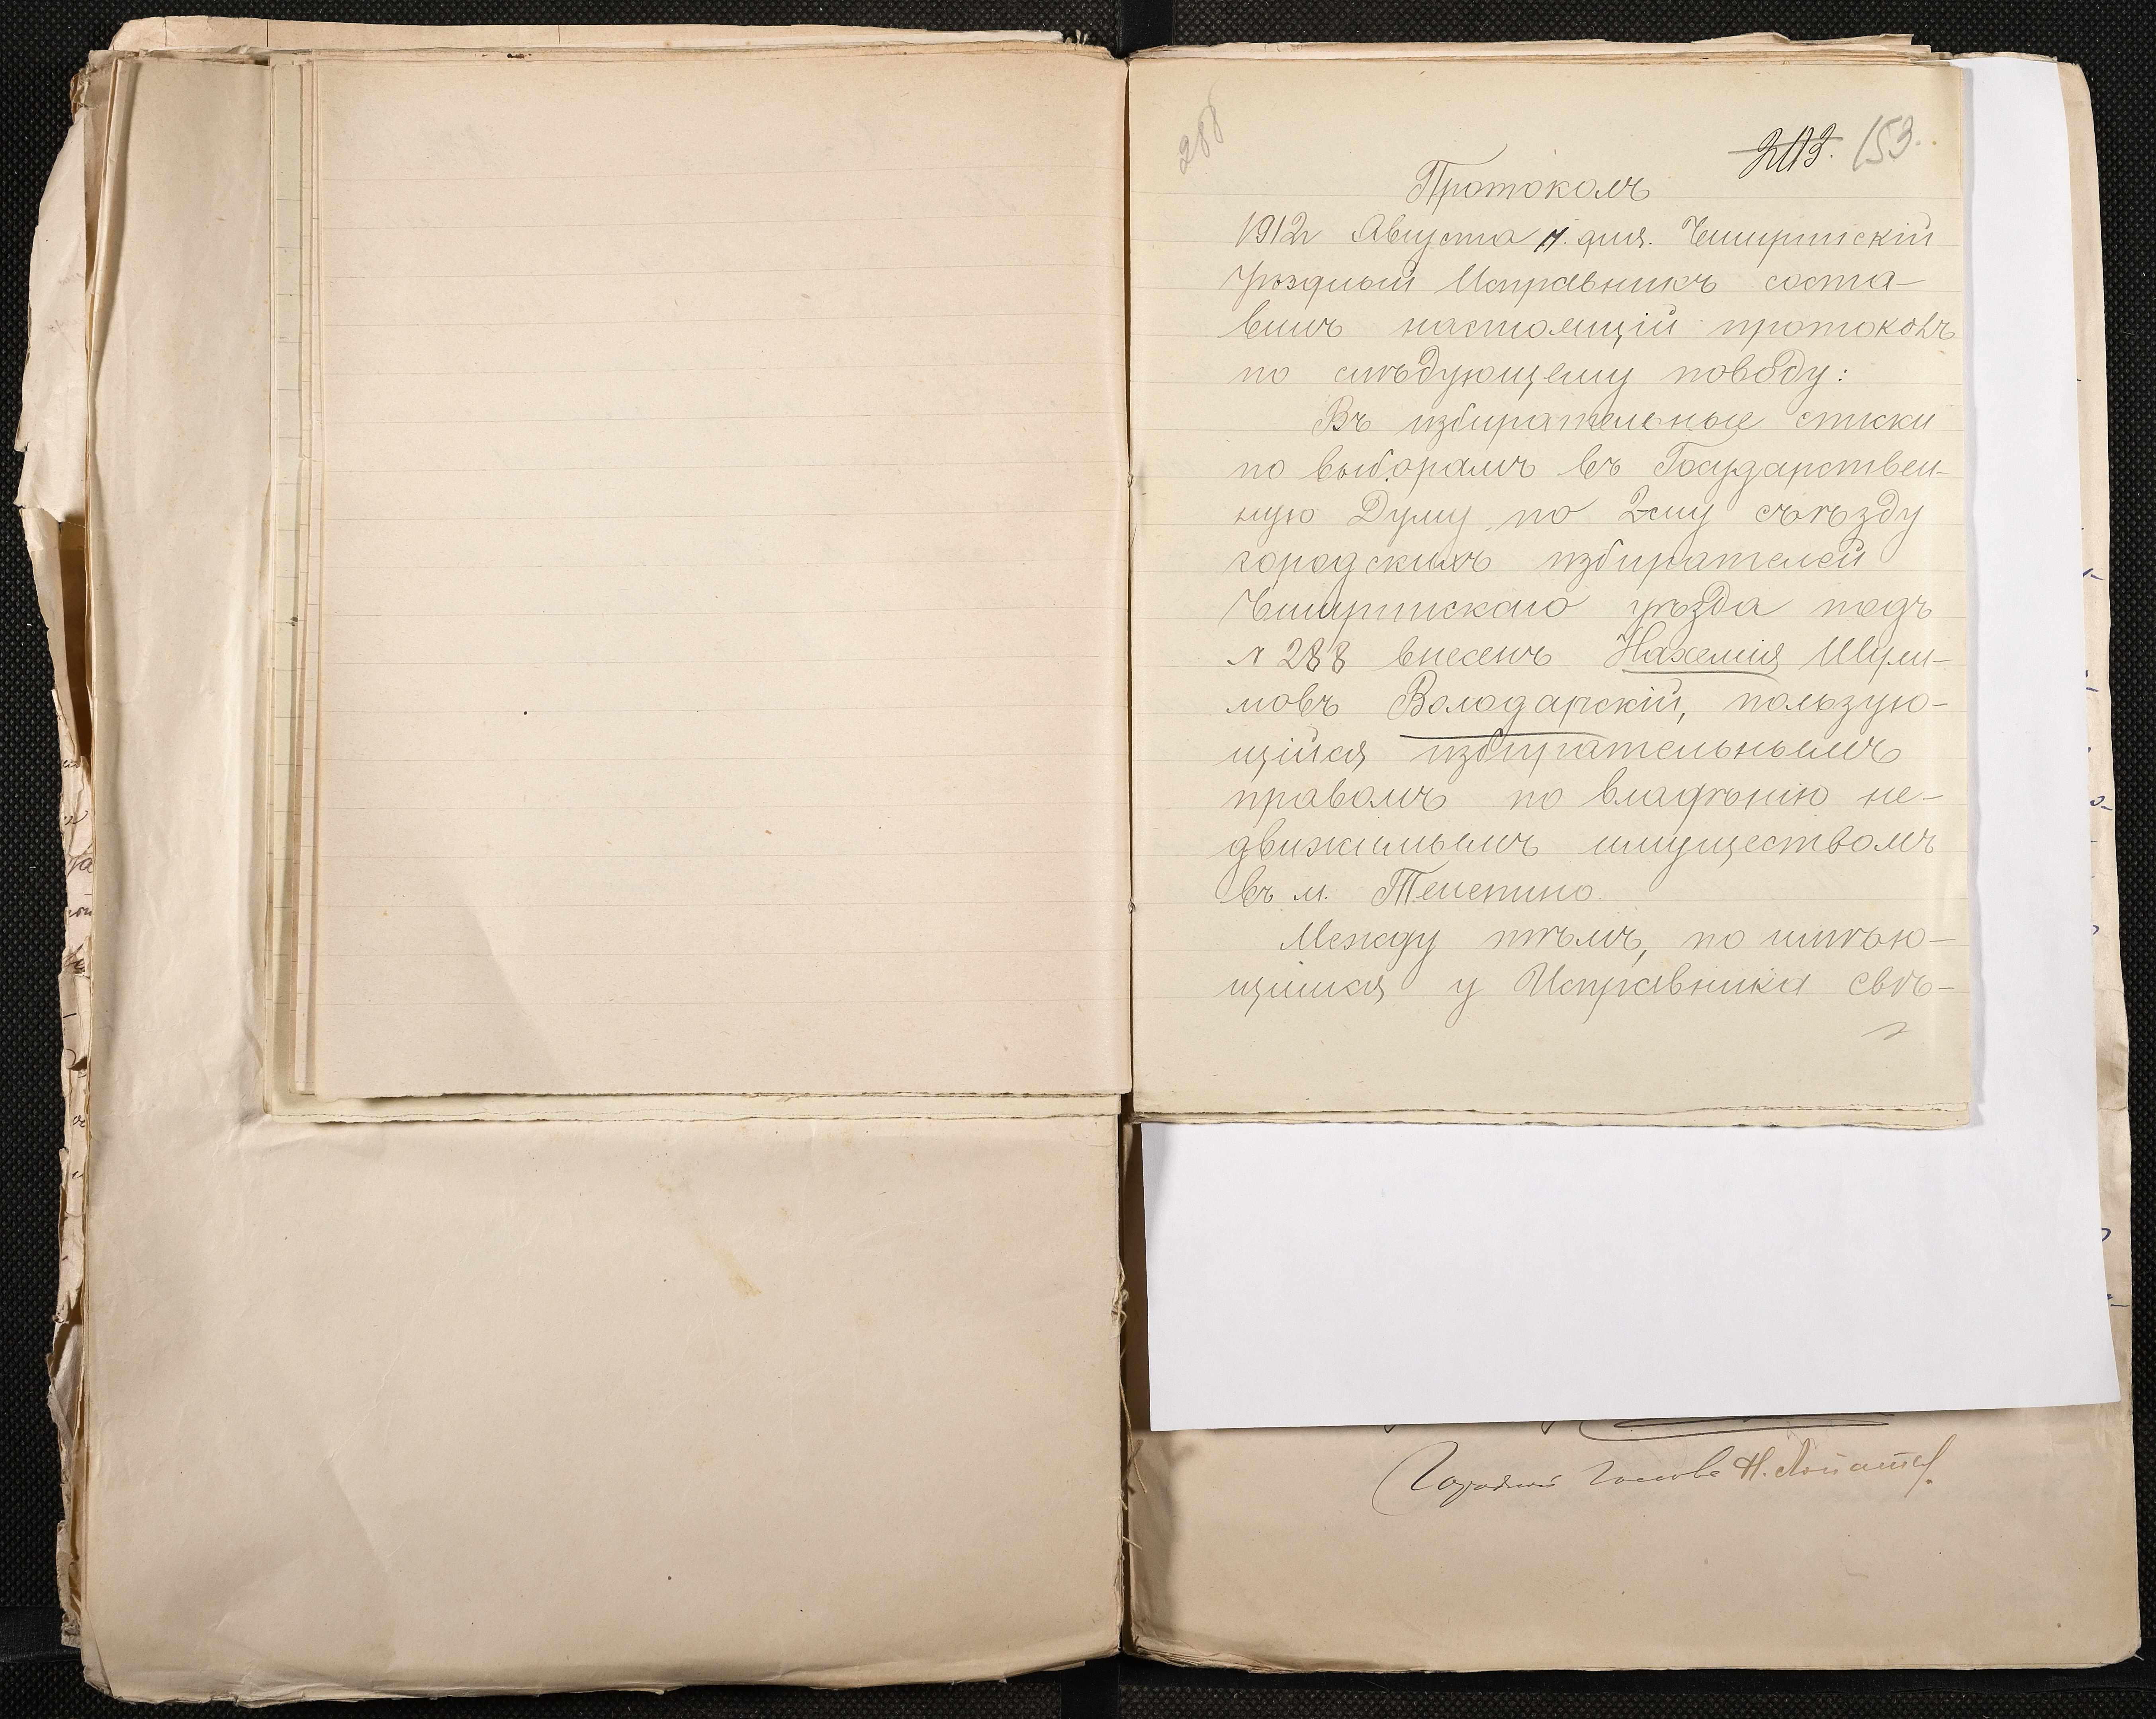 288
153.
Протоколъ
1912 Августа дня. Чигиринскій
Уѣздный Исправникъ соста-
вилъ настоящій протоколъ
по слѣдующему поводу:
Въ избирательные списки
по выборамъ въ Государствен-
ную Думу по 2ому съѣзду
городскихъ избирателей
Чигиринскаго уѣзда подъ
№ 288 внесенъ Нахемія Шули-
мовъ Володарскій, пользую-
щійся избирательнымъ
правомъ по владѣнію не-
движимымъ имуществомъ
въ м. Телепино.
Между тѣмъ, по имѣю-
щимся у Исправника свѣ-
Городской Голова Н.